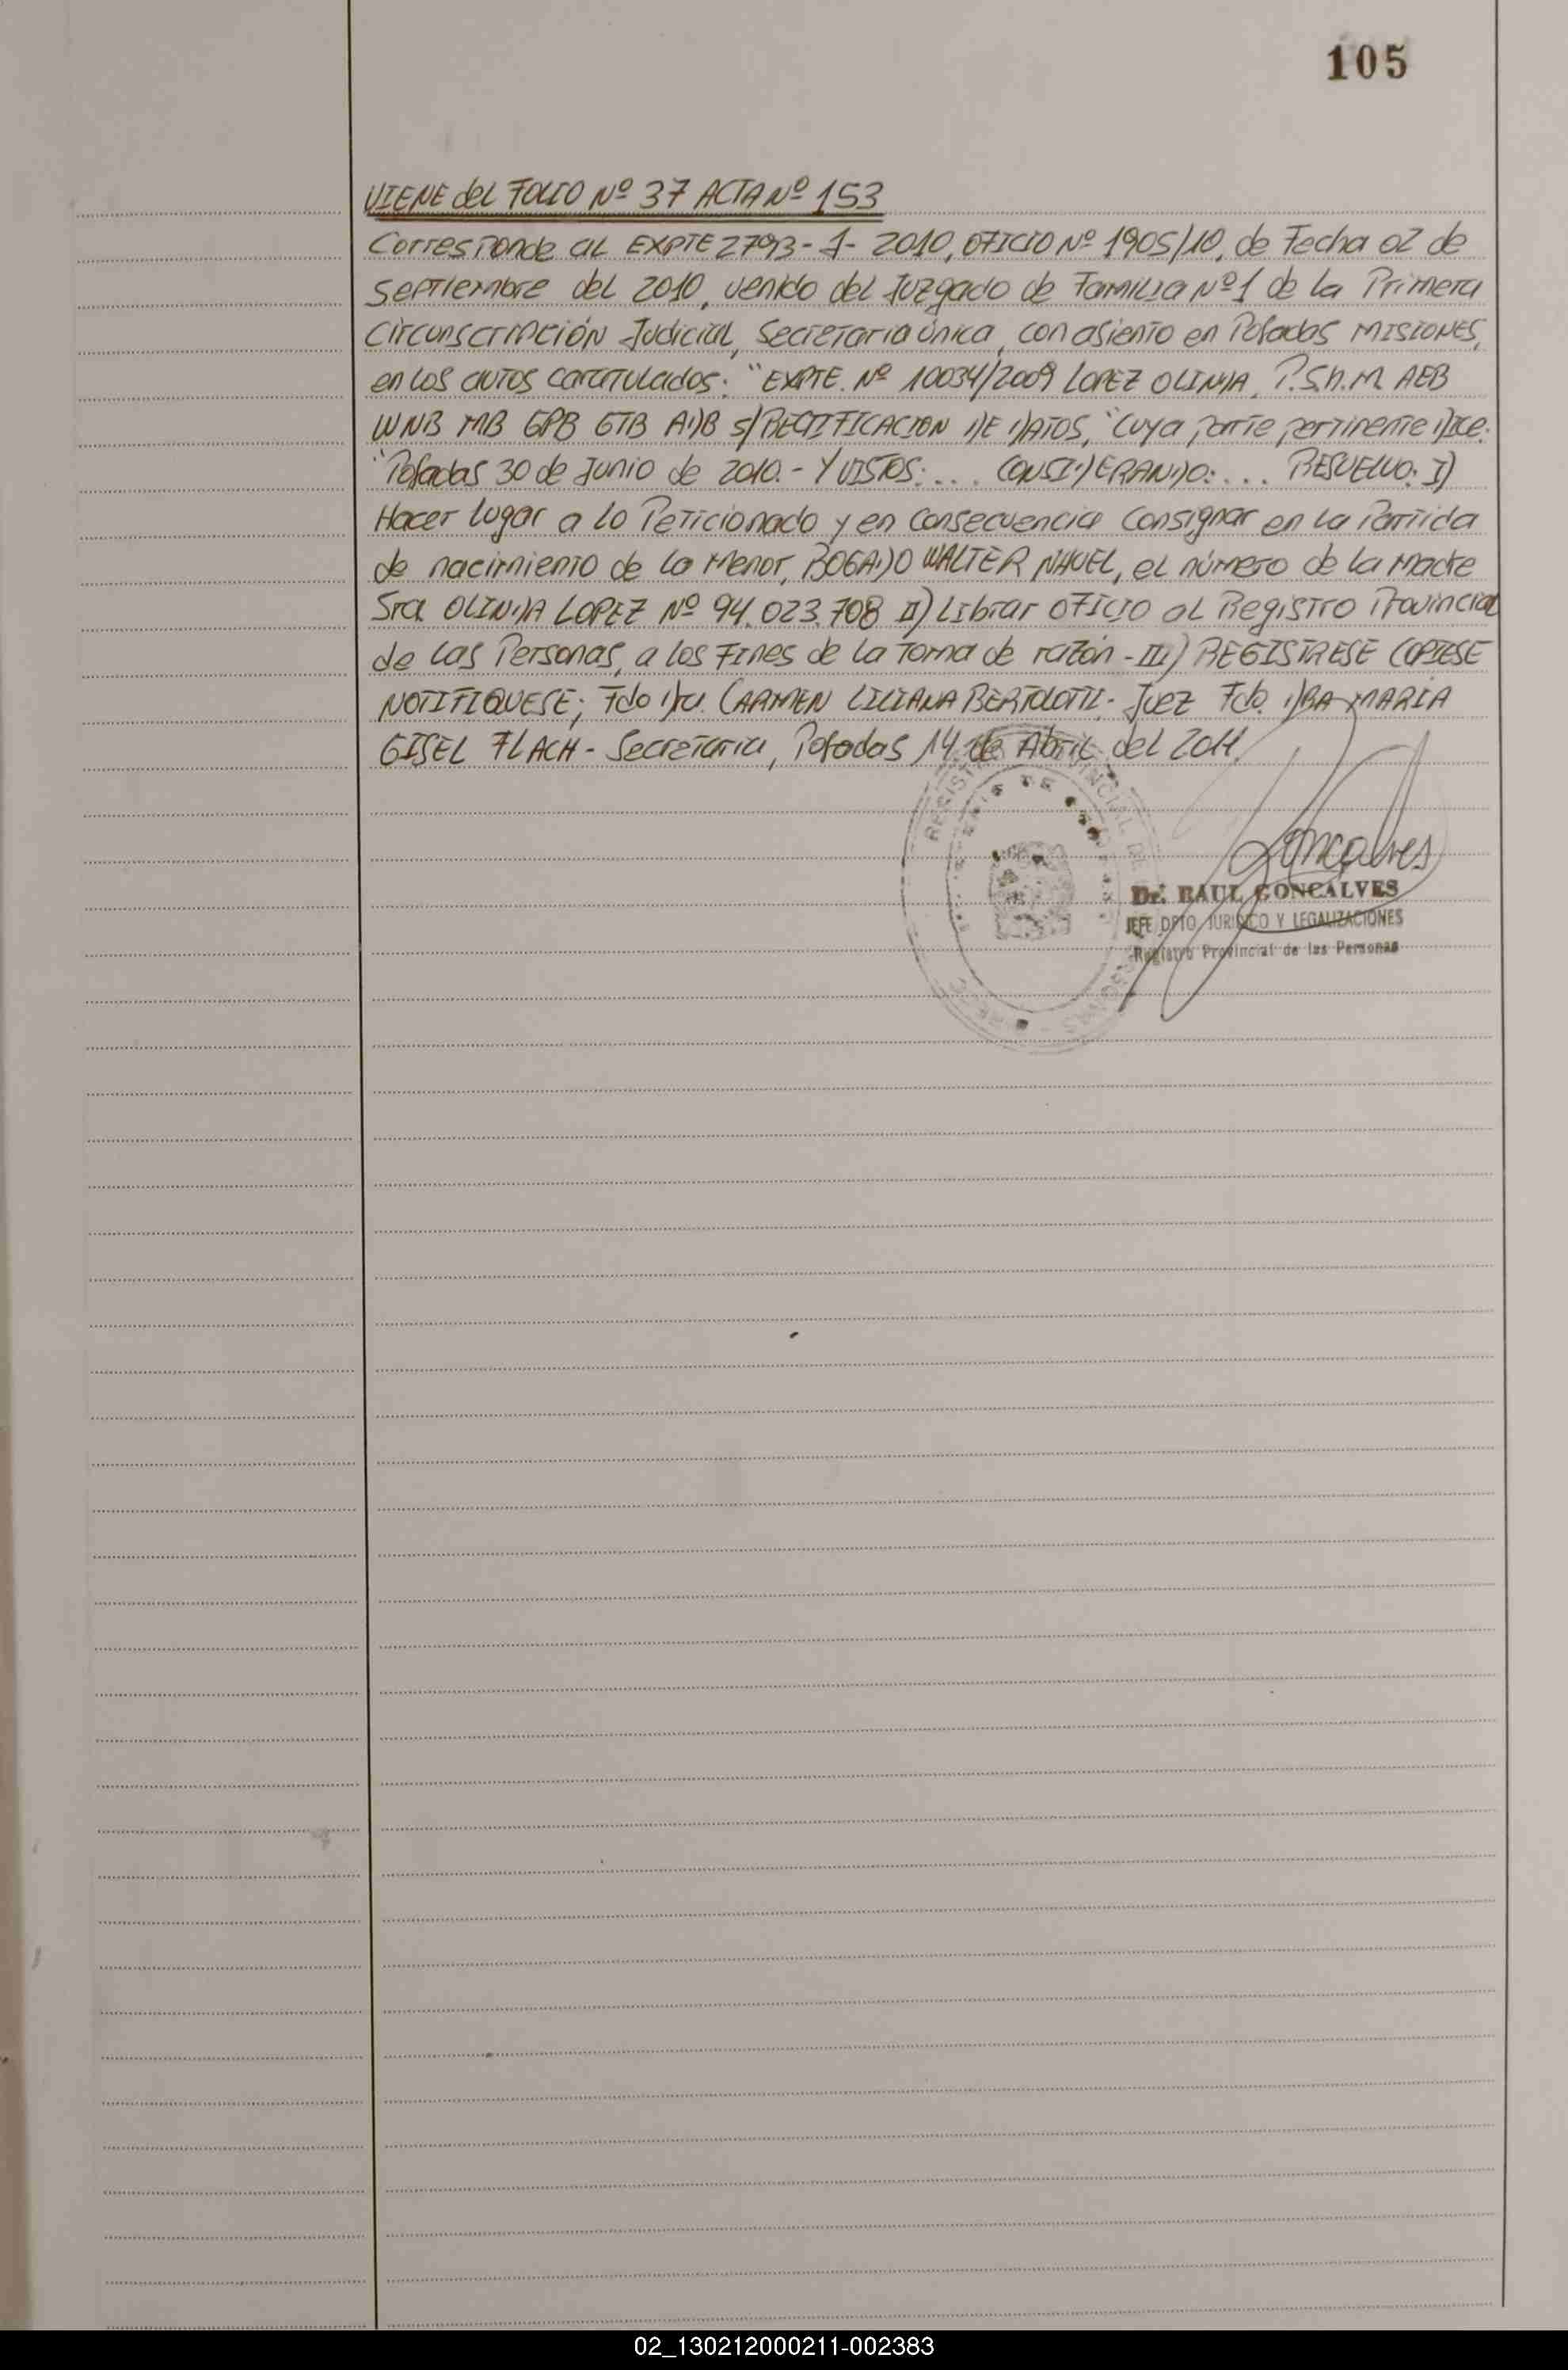 105
VIENE del FOLIO Nº 37 ACTA Nº 153
Corresponde al EXPTE 2793-J-2010, OFICIO Nº 1905/10, de Fecha 02 de
septiembre del 2010, venido del Juzgado de Familia Nº1 de la Primera
Circunscripción Judicial, Secretaria única, con asiento en Posadas MISIONES,
en los autos caratulados: "EXPTE. Nº 10034/2009 LOPEZ OLINDA, P.S.h.M. AEB
WNB MB GPB GTB ADB s/RECTIFICACION DE DATOS, "Cuya parte pertinente Dice:
"Posadas 30 de Junio de 2010.- Y VISTOS: ... CONSIDERANDO: ... RESUELVO: I)
Hacer lugar a lo Peticionado y en consecuencia consignar en la Partida
de nacimiento de lo Menor, BOGADO WALTER NAHUEL, el número de la Madre
Sra OLINDA LOPEZ Nº 94.023.708 II) Librar OFICIO al Registro Provincial
de las Personas, a los Fines de la Toma de razón - III) REGISTRESE COPIESE
NOTIFIQUESE; Fdo Dra. CARMEN LILIANA BERTOLOTTI - Juez Fdo. DRA MARIA
GISEL FLACH - Secretaria, Posadas 14 de Abril del 2011.
Goncalves
Dr. RAUL GONCALVES
JEFE DPTO JURIDICO Y LEGALIZACIONES
Registro Provincial de las Personas
02_130212000211-002383